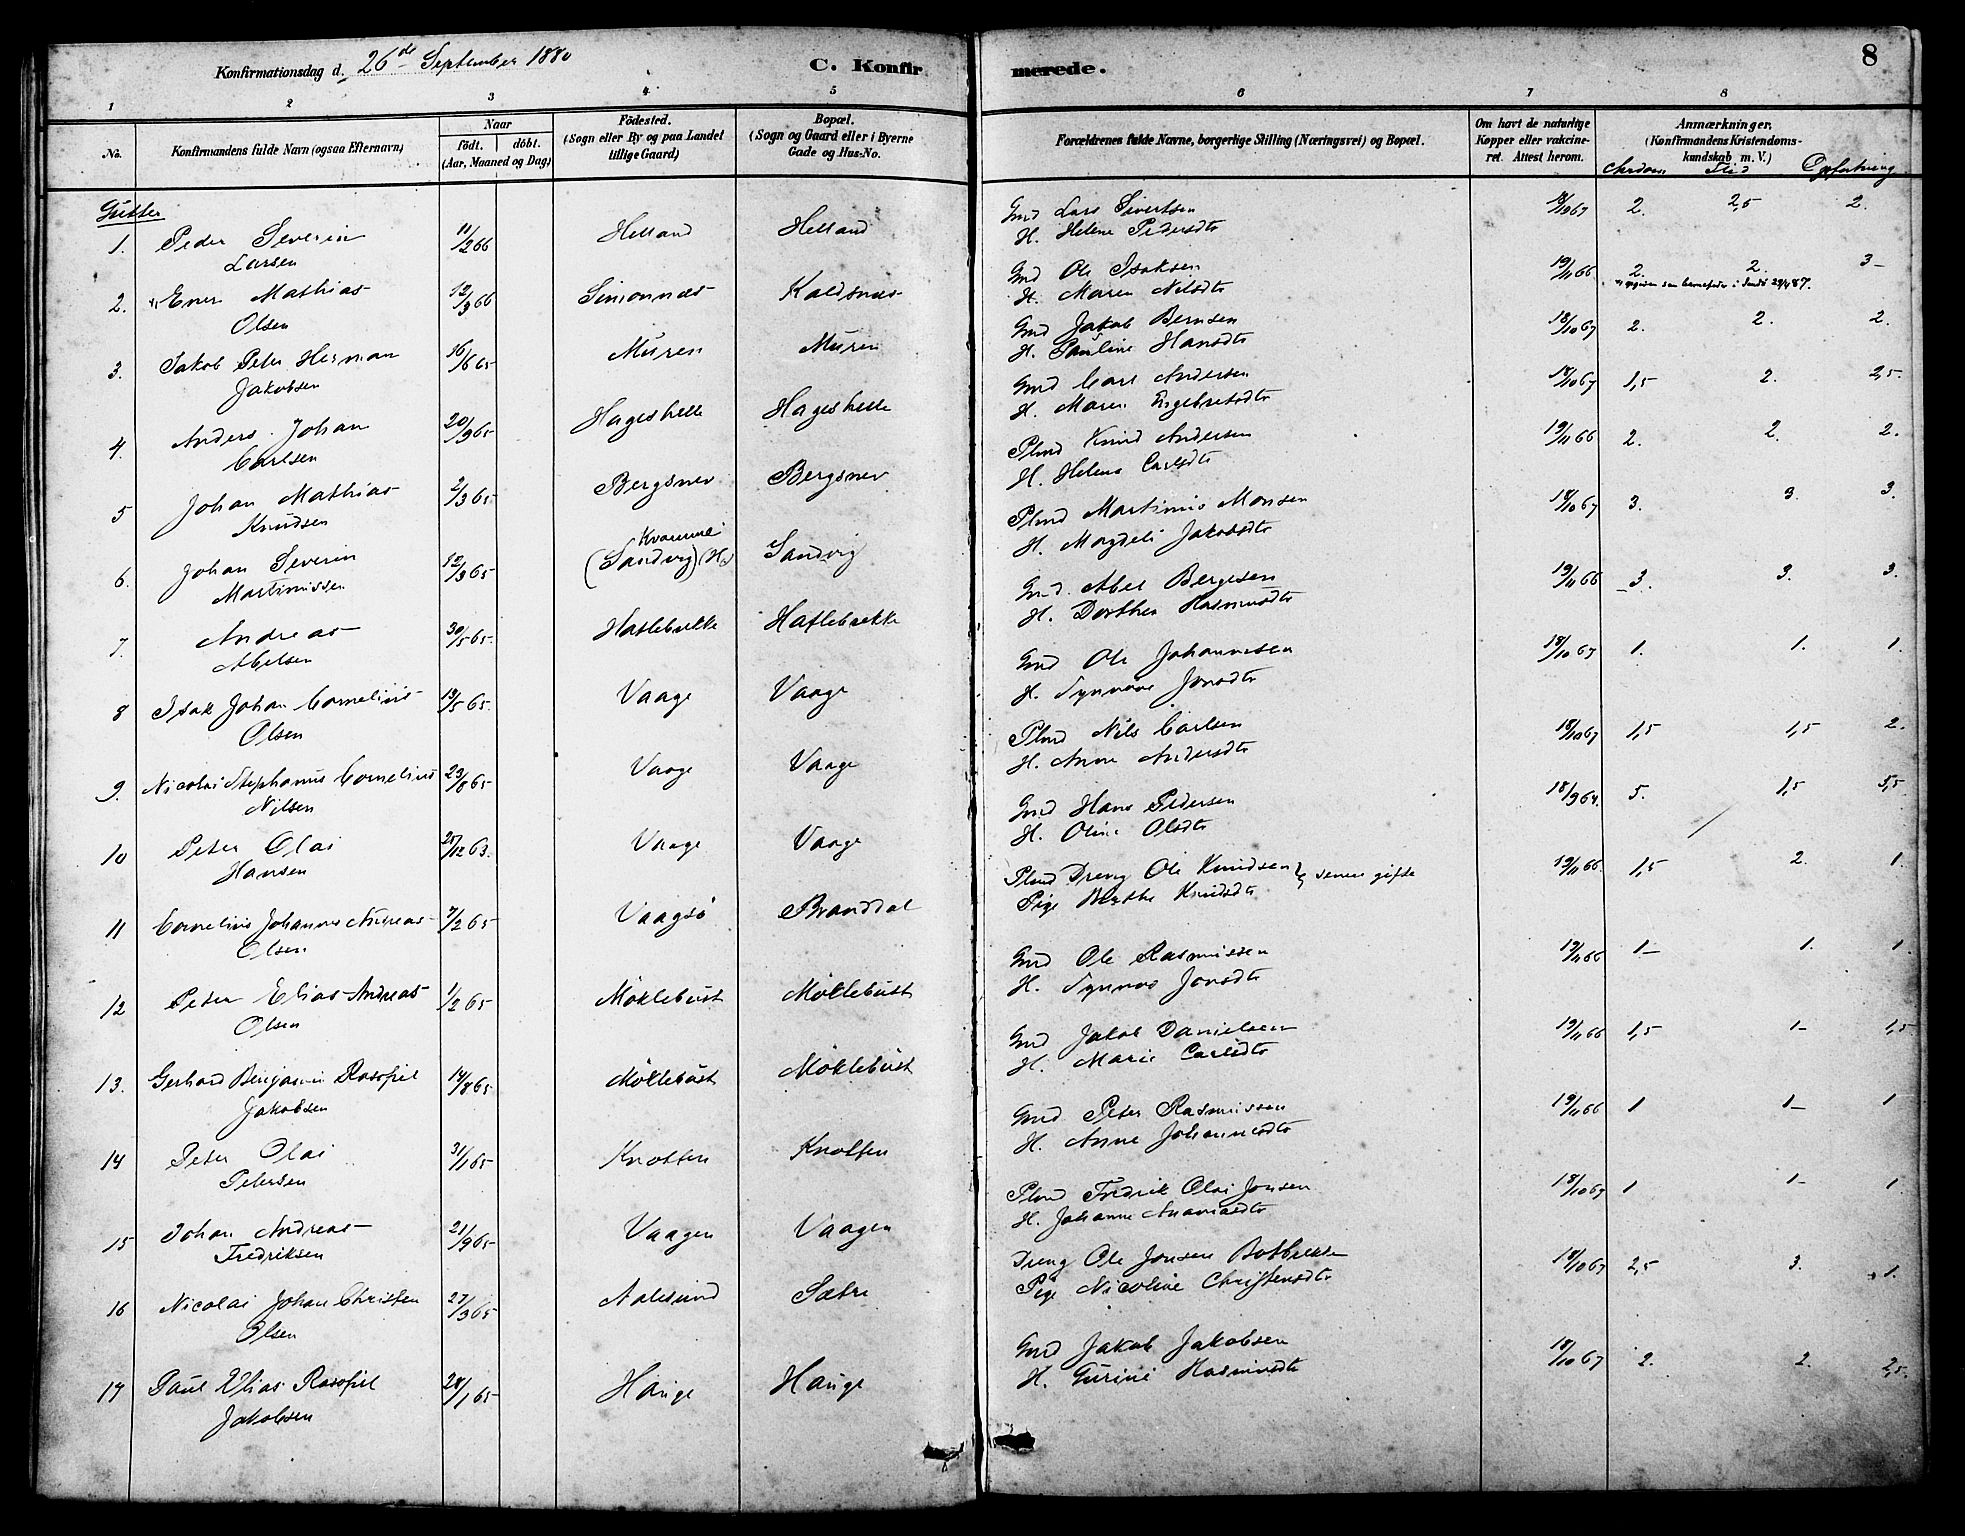 Konfirmationsdag d. 26de September 1880
C. Konfirmerede.
8
1 2 3 4 5 6 7 8
No.
Konfirmandens fulde Navn (ogsaa Efternavn)
Naar
födt. döbt.
(Aar, Maaned og Dag)
Födested.
(Sogn eller By og paa Landet
tillige Gaard)
Bopæl.
(Sogn og Gaard eller i Byerne
Gade og Hus-No.
Forældrenes fulde Navne, borgerlige Stilling (Næringsvei) og Bopæl.
Om havt de naturlige
Kopper eller vakcine-
ret. Attest herom.
Anmærkninger,
(Konfirmandens Kristendoms-
kundskab m. V.)
Flid Opførtning
Gutter
1. Peder Severin 11/2 66 Helland Helland Gmd Lars Sivertsen 2. 2,5 2.
Larsen H. Helene Pedersdtr
2. Ener Mathias 12/3 66 Simonnæs Kaldsnæs Gmd Ole Isaksen 19/11 66 2. 2. 3-
Olsen H. Maren Nilsdtr
3. Jakob Peter Herman 16/6 65 Muren Muren Gmd Jakob Bernsen 18/10 67 2. 2. 2.
Jakobsen H. Pauline Hansdtr
4. Anders Johan 20/9 65 Hageshelle Hageshelle Gmd Carl Andersen 18/10 67 1,5 2. 2,5.
Carlsen H. Maren Engebretsdtr
5 Johan Mathias 2/3 65 Bergsnev Bergsnev Plmd Knud Andersen 19/11 66 2. 2. 2.
Knudsen H. Helene Carlsdtr
6. Johan Severin 12/3 65 Kvamme (Sandvig) (H) Sandvig Plmd Martinus Monsen 18/10 67 3. 3. 3.
Martinussen H. Magdeli Jakobsdtr
7. Andreas 30/5 65 Haflebrekke Haflebrekke Gmd. Abel Bergesen 19/11 66 3. 3. 3.
Abelsen H. Dorthea Rasmusdtr
8 Isak Johan Cornelius 13/5 65. Vaage Vaage Gmd Ole Johannesen 18/10 67 1. 1. 1.
Olsen H. Synnøve Jonsdtr
9. Nicolai Stephanus Cornelius 23/8 65 Vaage Vaage Plmd Nils Carlsen 18/10 67 1,5 1,5 2.
Nilsen H. Anne Andersdtr
10 Peter Olai 25/12 63. Vaage Vaage Gmd Hans Pedersen 18/9 64. 5. 1,5 5,5
Hansen H. Oline Olsdtr
11 Cornelius Johannes Andreas 7/2 65 Vaagsø Branddal Plmd Dreng Ole Knudsen } senere gifte 19/11 66. 1,5 2. 1.
Olsen Pige Berthe Knudsdtr
12 Peter Elias Andreas 1/2 65 Møklebust Møklebust Gmd Ole Rasmussen 19/11 66 1- 1. 1
Olsen H. Synnøve Jonsdtr
13. Gerhard Benjamin Rasofiel 14/8 65 Møklebust Møklebust Gmd Jakob Danielsen 19/11 66 1,5 1- 1,5
Jakobsen H. Marie Carlsdtr
14 Peter Olai 31/1 65 Knotten Knotten Gmd Peter Rasmussen 19/11 66 1 1- 1
Petersen H. Anne Johannesdtr
15 Johan Andreas 21/9 65 Vaagen Vaagen Plmd Fredrik Olai Jonsen 18/10 67 1 1- 1
Fredriksen H. Johanne Ananiasdtr
16 Nicolai Johan Christen 27/3 65 Aalesund Sætre Dreng Ole Jonsen 18/10 67 2,5 3. 1.
Olsen Pige Nicoline Christensdtr
17 Paul Elias Rasofiel 28/1 65 Hauge Hauge Gmd Jakob Jakobsen 18/10 67 2. 2. 2,5.
Jakobsen H. Gurine Rasmusdtr